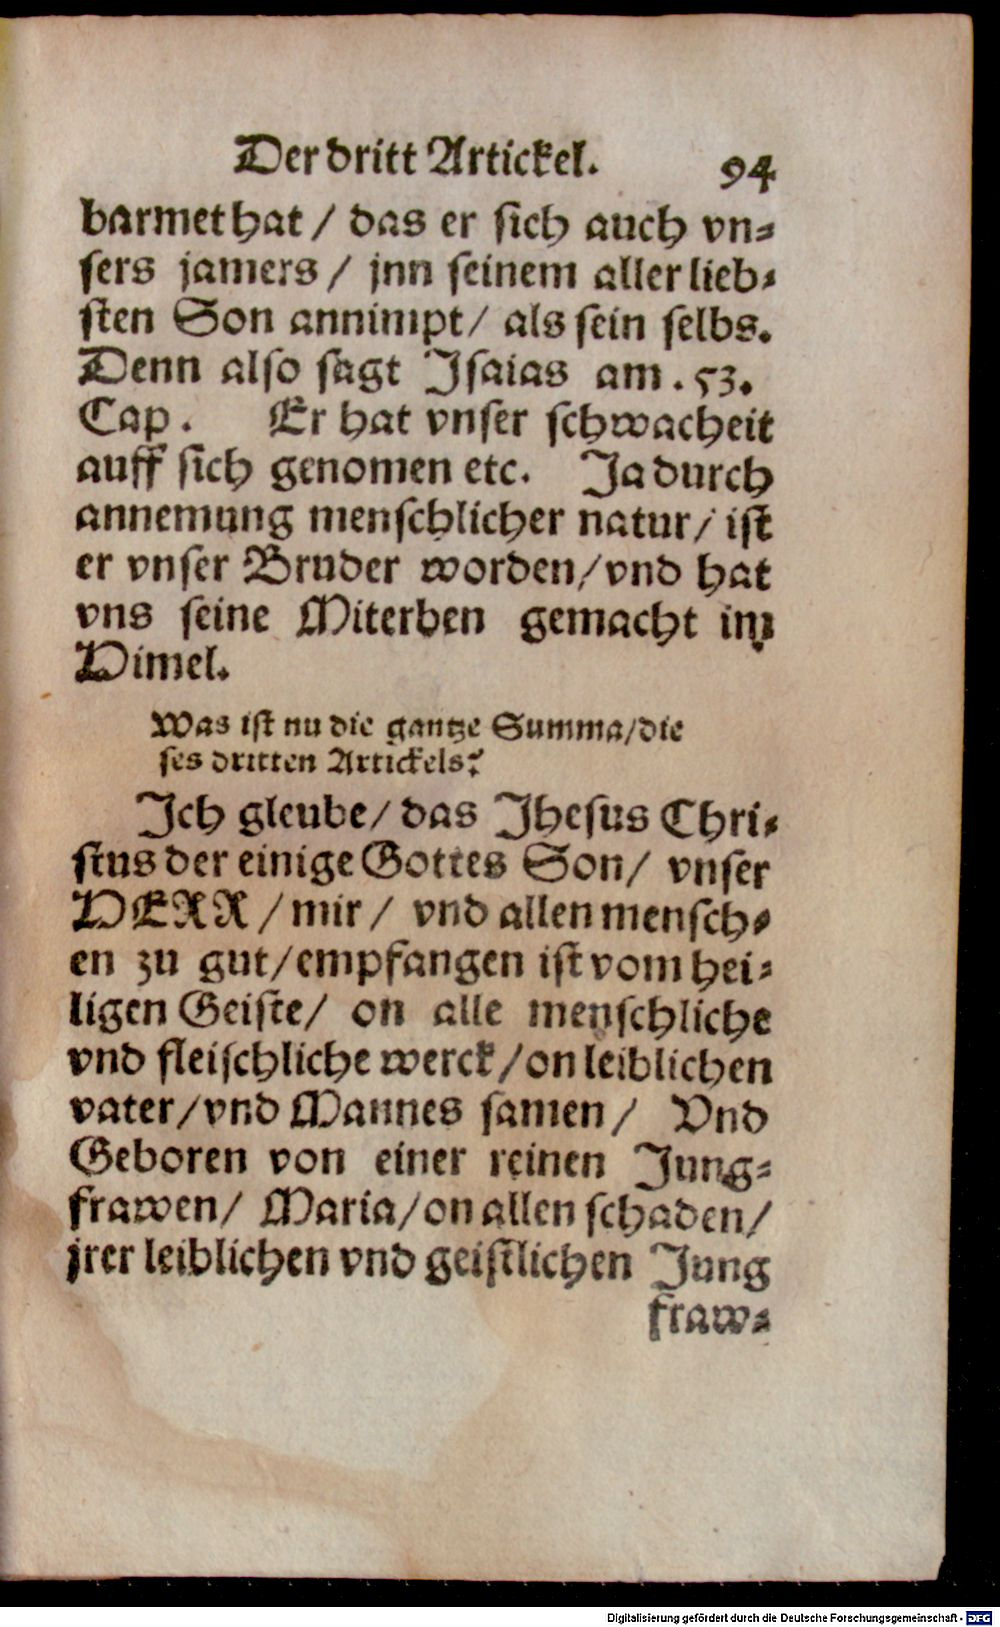 Der dritt Artickel. 94
barmet hat / das er sich auch vn⸗
sers jamers / jnn seinem aller lieb⸗
sten Son annimpt / als sein selbs.
Denn also sagt Jsaias am . 53.
Cap. Er hat vnser schwacheit
auff sich genomen etc. Ja durch
annemung menschlicher natur / ist
er vnser Bruder worden / vnd hat
vns seine Miterben gemacht im
Himel.
Was ist nu die gantze Summa / die
ses dritten Artickels?
Jch gleube / das Jhesus Chri⸗
stus der einige Gottes Son / vnser
HERR / mir / vnd allen mensch⸗
en zu gut / empfangen ist vom hei⸗
ligen Geiste / on alle menschliche
vnd fleischliche werck / on leiblichen
vater / vnd Mannes samen / Vnd
Geboren von einer reinen Jung⸗
frawen / Maria / on allen schaden /
jrer leiblichen vnd geistlichen Jung
fraw⸗
Digitalisierung gefördert durch die Deutsche Forschungsgemeinschaft - DFG